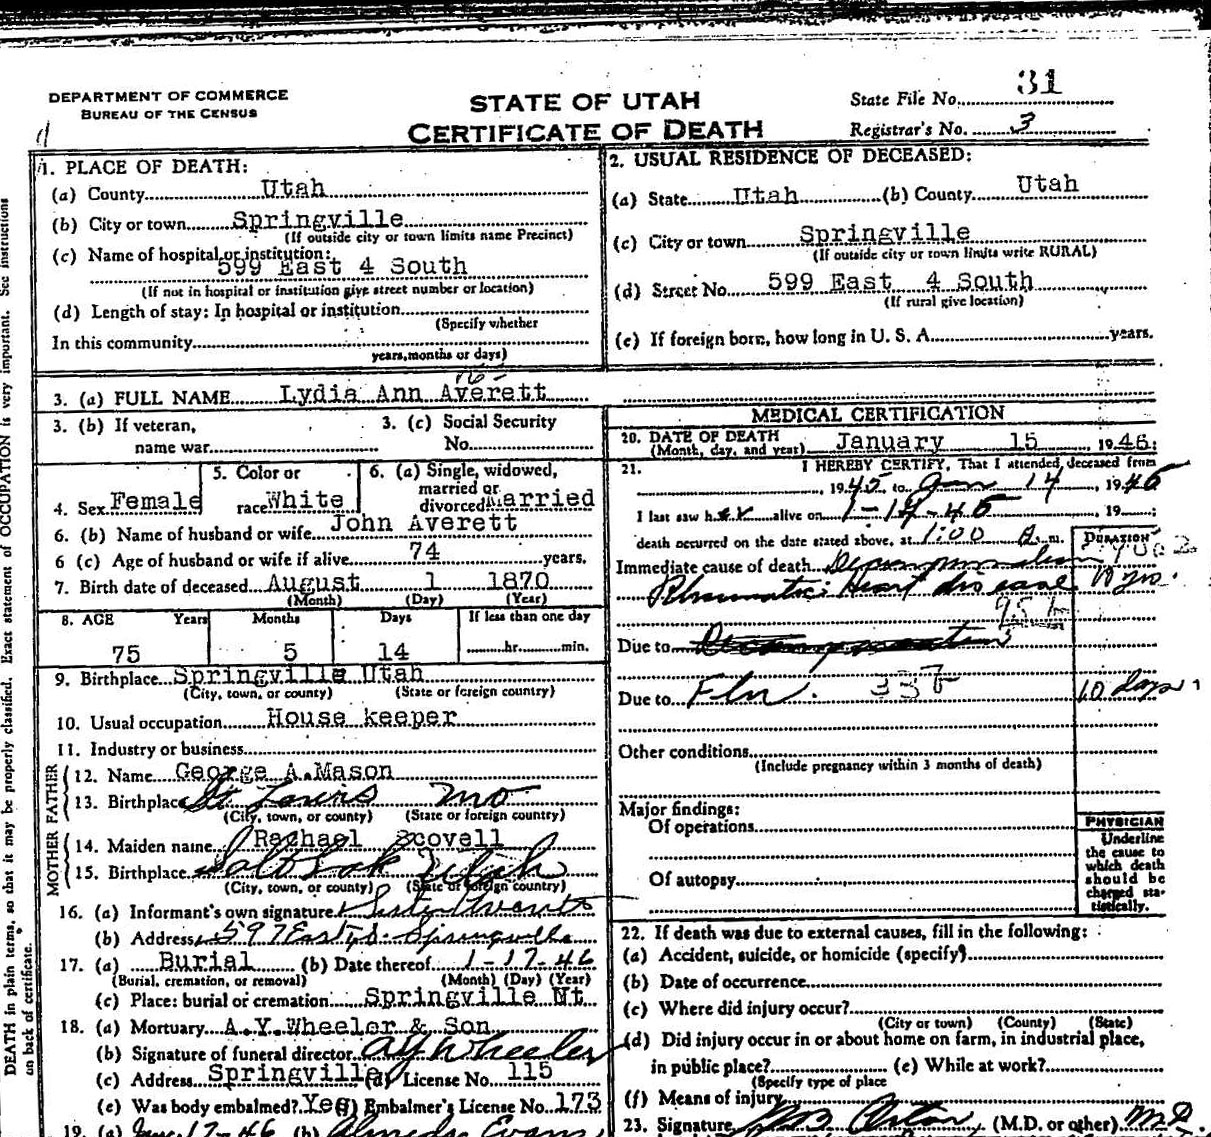 DEPARTMENT OF COMMERCE
BUREAU OF THE CENSUS
STATE OF UTAH
CERTIFICATE OF DEATH
State File No. 31
Registrar's No. 3
1. PLACE OF DEATH:
(a) County Utah
(b) City or town Springville
(If outside city or town limits name Precinct)
(c) Name of hospital or institution:
599 East 4 South
(If not in hospital or institution give street number or location)
(d) Length of stay: In hospital or institution
(Specify whether
In this community
years, months or days)
2. USUAL RESIDENCE OF DECEASED:
(a) State Utah (b) County Utah
(c) City or town Springville
(If outside city or town limits write RURAL)
(d) Street No. 599 East 4 South
(If rural give location)
(e) If foreign born, how long in U. S. A. years.
3. (a) FULL NAME Lydia Ann Averett
3. (b) If veteran,
name war
3. (c) Social Security
No.
4. Sex Female
5. Color or
race White
6. (a) Single, widowed,
married or
divorced Married
6. (b) Name of husband or wife John Averett
6 (c) Age of husband or wife if alive 74 years.
7. Birth date of deceased August 1 1870
(Month) (Day) (Year)
8. AGE Years Months Days If less than one day
75 5 14 hr. min.
9. Birthplace Springville Utah
(City, town, or county) (State or foreign country)
10. Usual occupation House keeper
11. Industry or business
FATHER
12. Name George A. Mason
13. Birthplace St Louis Mo
(City, town, or county) (State or foreign country)
MOTHER
14. Maiden name Rachael Scovell
15. Birthplace Salt Lake Utah
(City, town, or county) (State or foreign country)
16. (a) Informant's own signature
(b) Address Springville
17. (a) Burial (b) Date thereof 1-17-46
(Burial, cremation, or removal) (Month) (Day) (Year)
(c) Place: burial or cremation Springville Ut
18. (a) Mortuary A. Y. Wheeler & Son
(b) Signature of funeral director A Y Wheeler
(c) Address Springville (d) License No. 115
(e) Was body embalmed? Yes (f) Embalmer's License No. 173
19. (a) Jan. 17-46 (b) Evans
MEDICAL CERTIFICATION
20. DATE OF DEATH
(Month, day, and year) January 15 1946;
21. I HEREBY CERTIFY, That I attended deceased from
1945 to Jan 14, 1946
I last saw her alive on 1-14-46 19 ;
death occurred on the date stated above, at 1:00 a.m.
DURATION
Immediate cause of death
Rheumatic Heart disease 10 yrs.
Due to
Due to Flu. 10 days
Other conditions
(Include pregnancy within 3 months of death)
Major findings:
Of operations
Of autopsy
PHYSICIAN
Underline
the cause to
which death
should be
charged sta-
tistically.
22. If death was due to external causes, fill in the following:
(a) Accident, suicide, or homicide (specify)
(b) Date of occurrence
(c) Where did injury occur?
(City or town) (County) (State)
(d) Did injury occur in or about home on farm, in industrial place,
in public place? (e) While at work?
(Specify type of place
(f) Means of injury
23. Signature (M.D. or other) M.D.
DEATH in plain terms, so that it may be properly classified. Exact statement of OCCUPATION is very important. See instructions
on back of certificate.